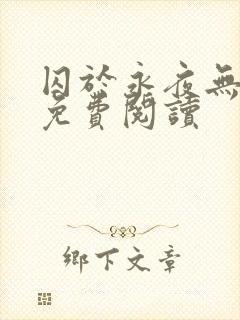 囚於永夜無
免費閱讀
鄉下文章